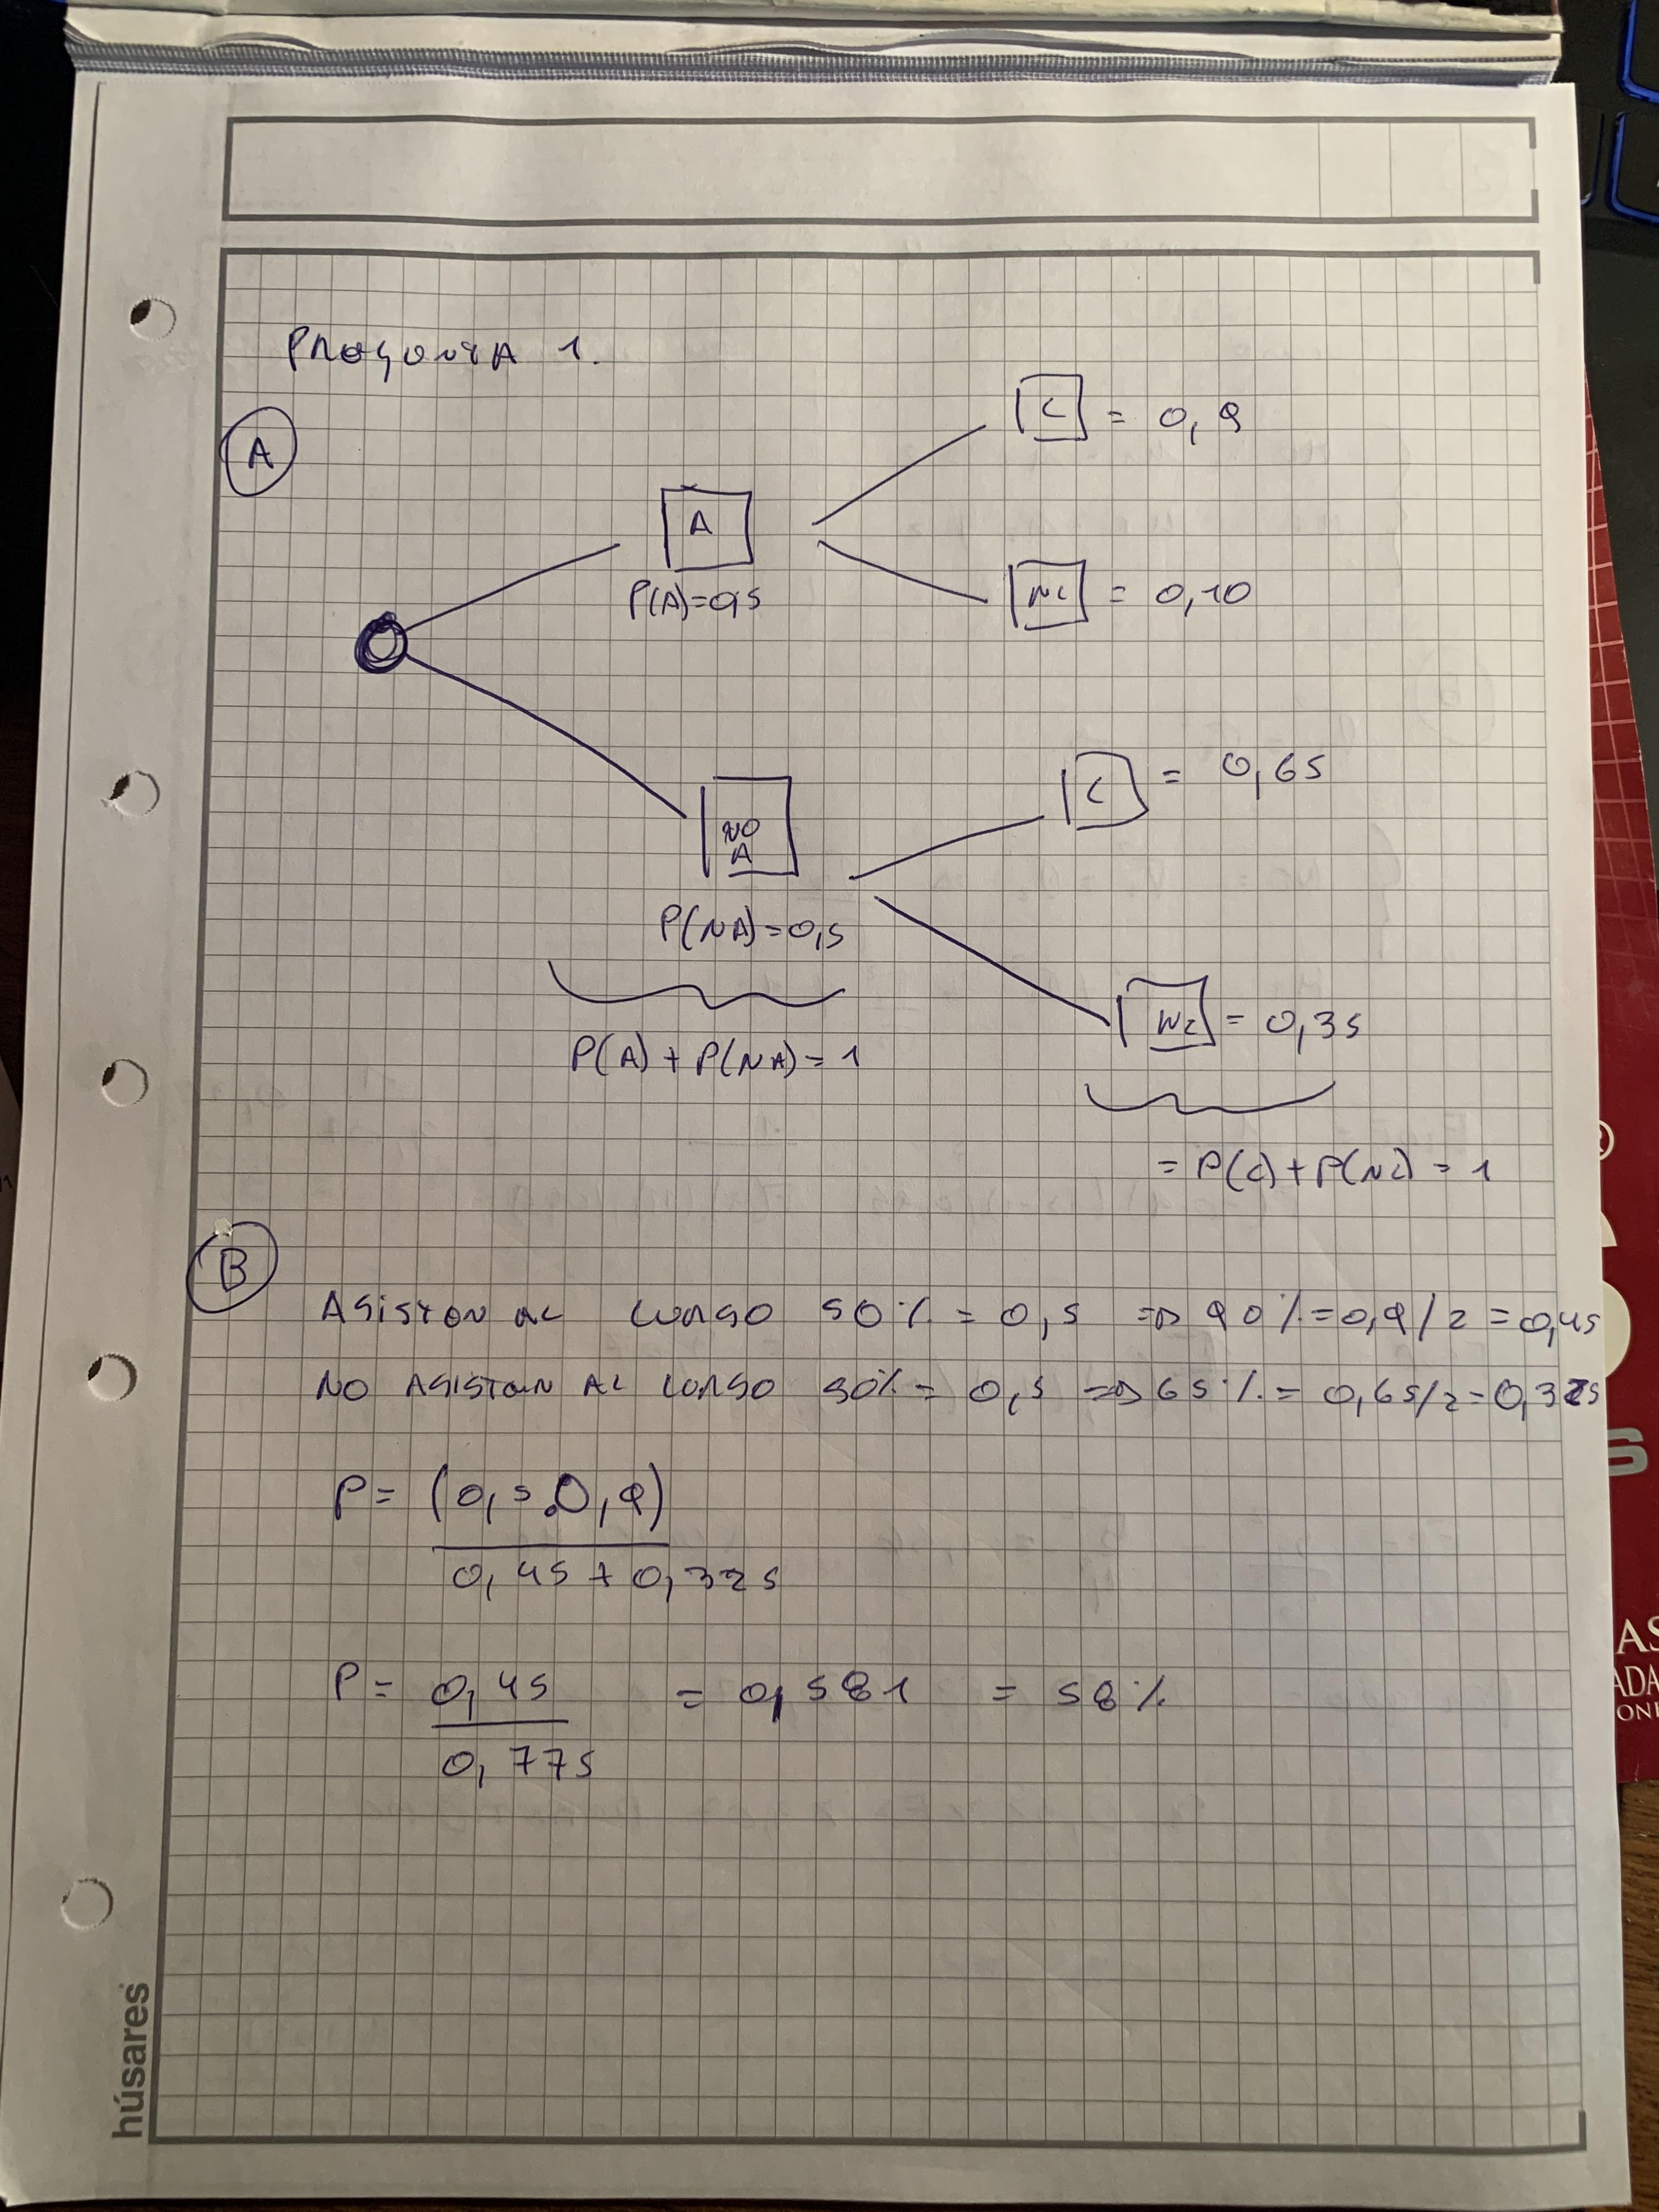 PREGUNTA 1.
A
A
P(A)=0,5
C = 0,9
NC = 0,10
NO
A
P(NA)=0,5
C = 0,65
NC = 0,35
P(A) + P(NA) = 1
= P(C) + P(NC) = 1
B
ASISTEN AL CURSO 50% = 0,5 => 90% = 0,9/2 = 0,45
NO ASISTEN AL CURSO 50% = 0,5 => 65% = 0,65/2 = 0,325
P = (0,5.0,9)
0,45 + 0,325
P = 0,45 = 0,581 = 58%
0,775
húsares
®
S
AS
ADA
ONI